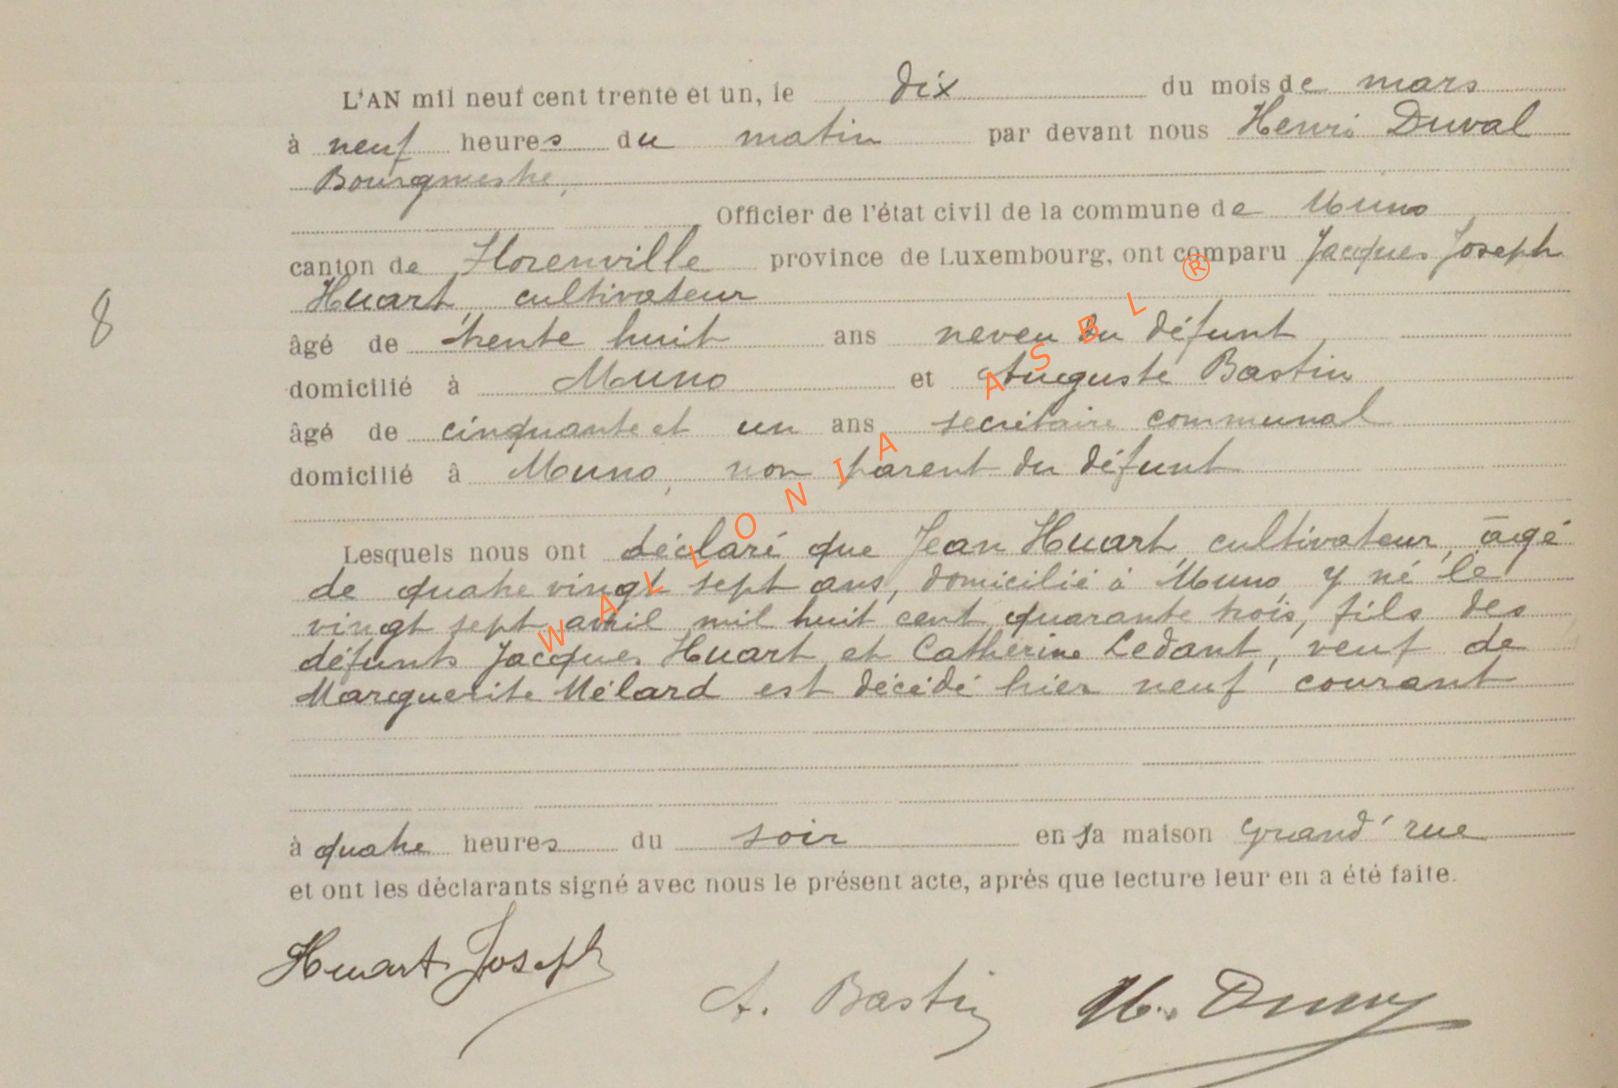 L'AN mil neuf cent trente et un, le dix du mois de mars
à neuf heures du matin par devant nous Henri Duval
Bourgmestre,
Officier de l'état civil de la commune de Muno
canton de Florenville province de Luxembourg, ont comparu Jacques Joseph
Huart, cultivateur
âgé de trente huit ans neveu du défunt
domicilié à Muno et Auguste Bastin
âgé de cinquante et un ans secrétaire communal
domicilié à Muno, non parent du défunt
8
Lesquels nous ont déclaré que Jean Huart, cultivateur, âgé
de quatre vingt sept ans, domicilié à Muno, y né le
vingt sept avril mil huit cent quarante trois, fils des
défunts Jacques Huart et Catherine Ledant, veuf de
Marguerite Mélard est décédé hier neuf courant
à quatre heures du soir en sa maison Grand'rue
et ont les déclarants signé avec nous le présent acte, après que lecture leur en a été faite.
Huart Joseph
A. Bastin H. Duval
WALLONIA ASBL ®